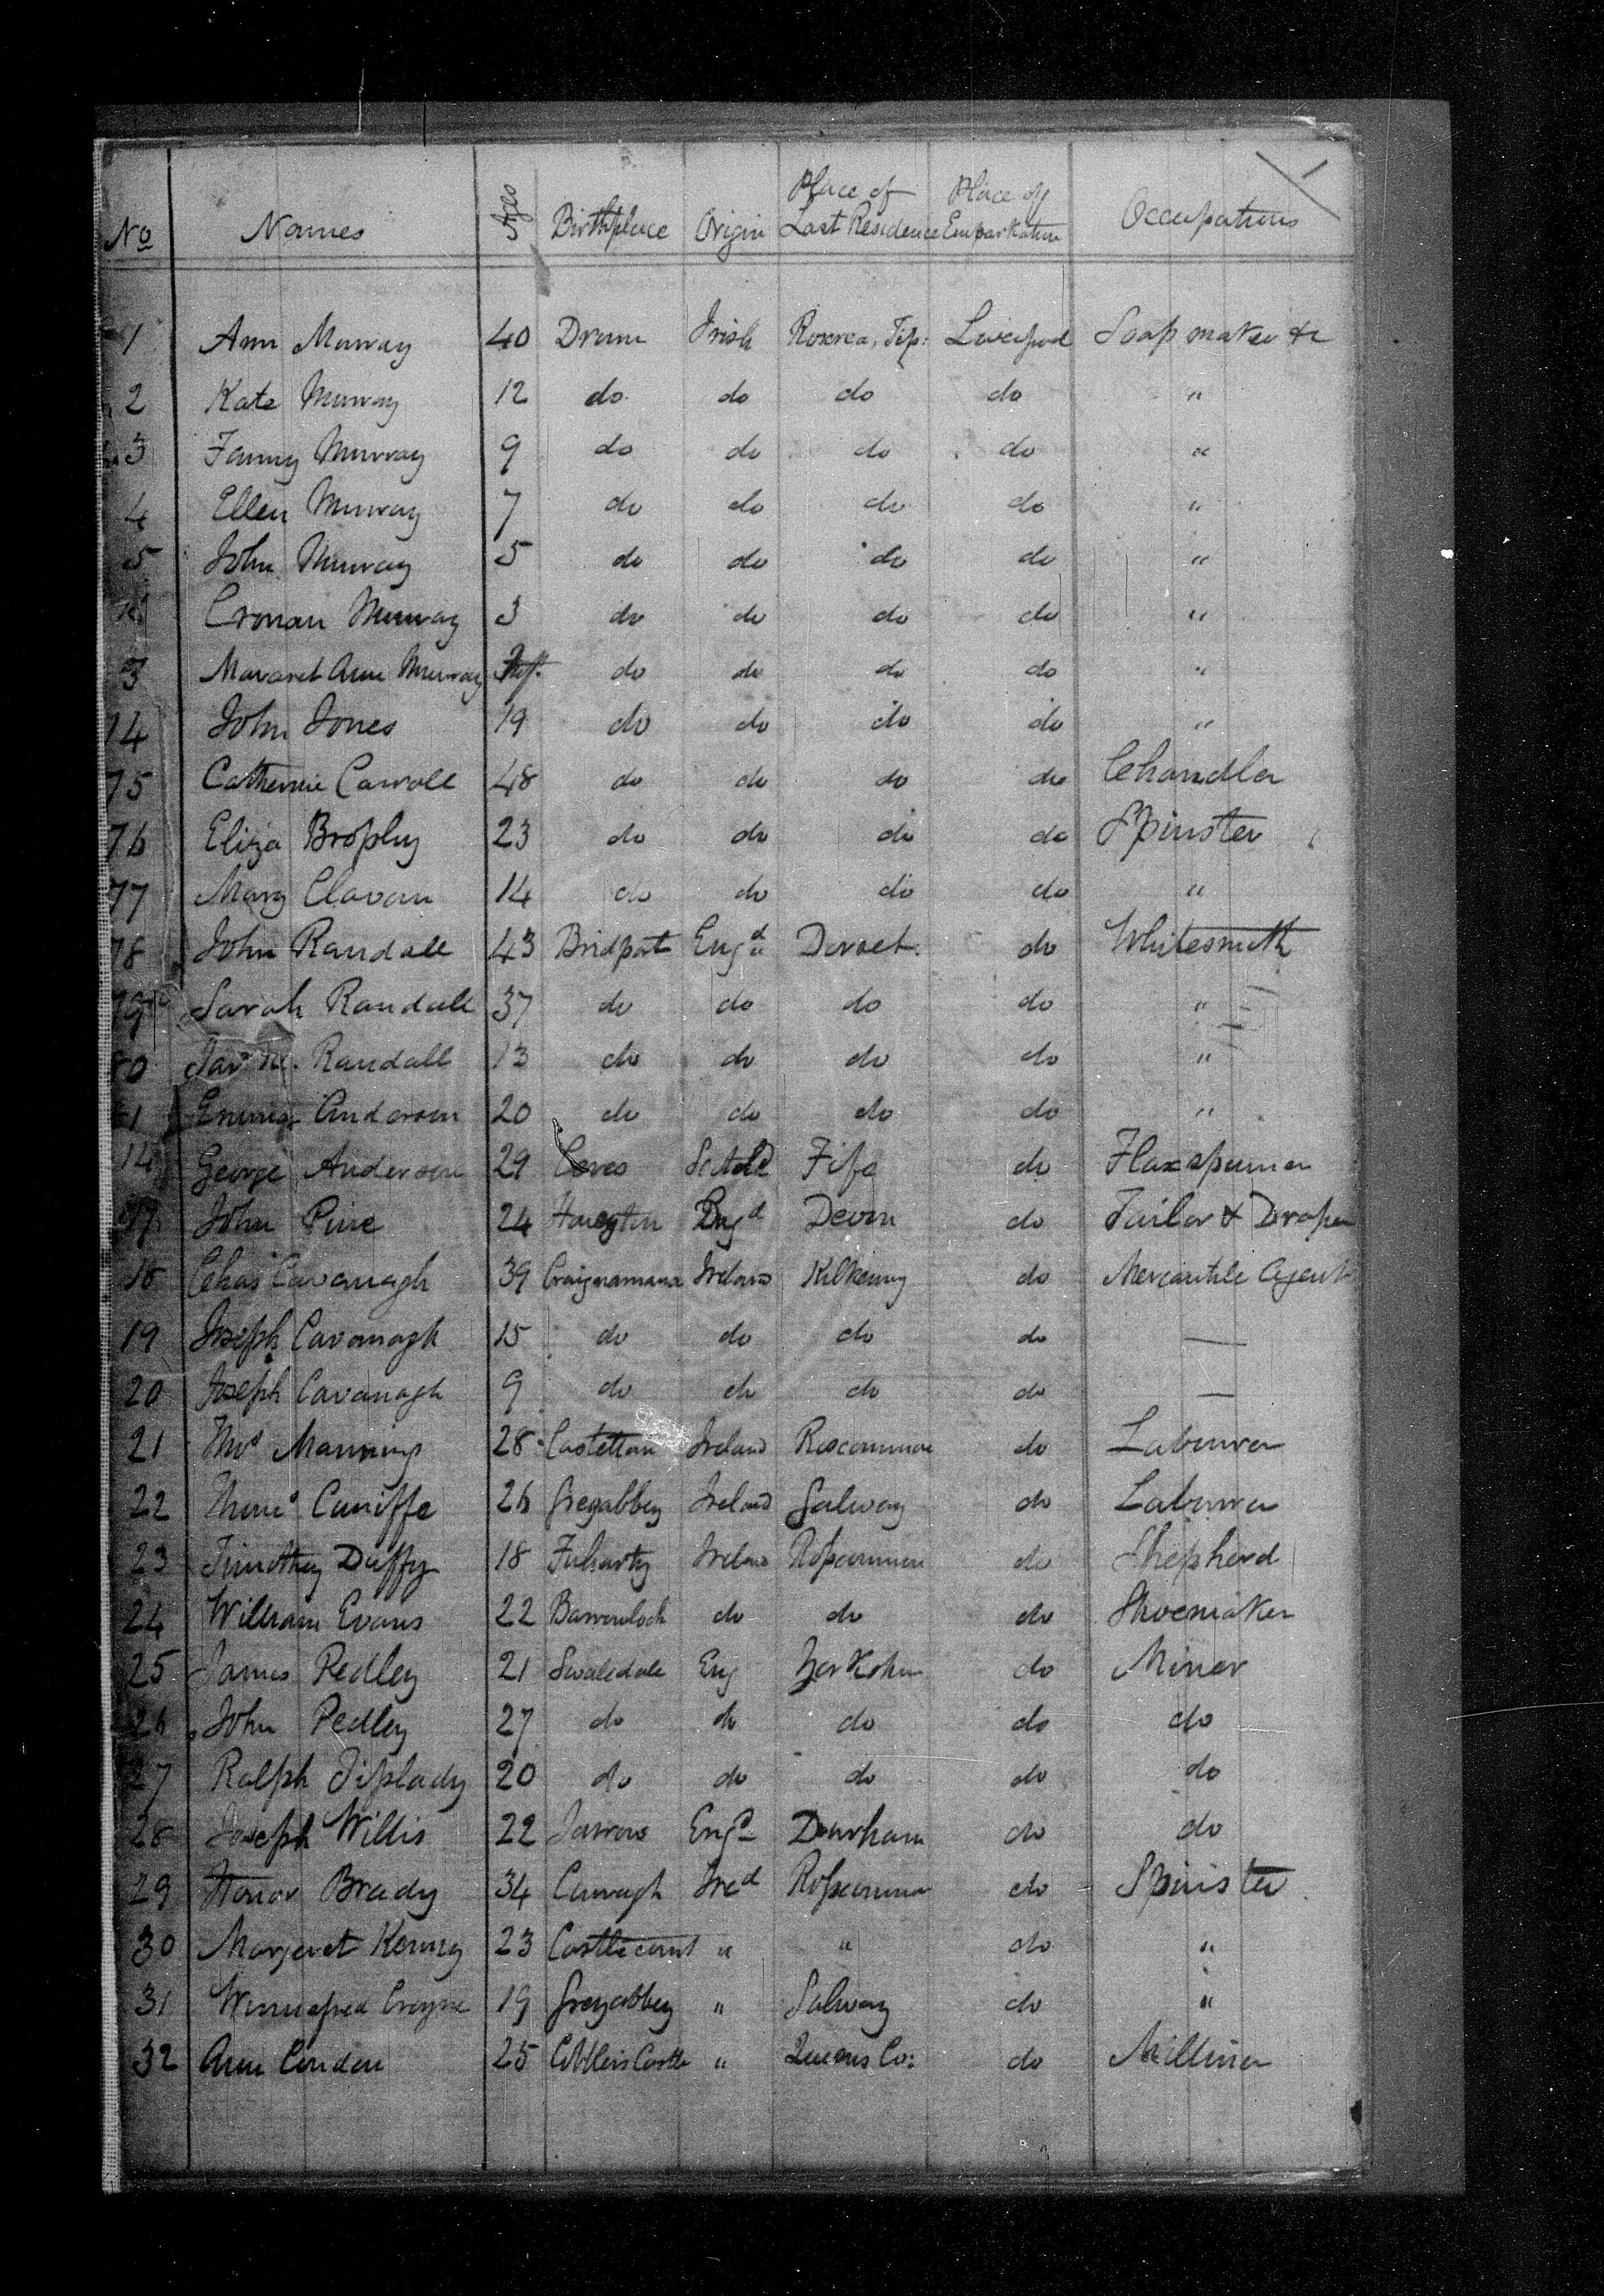 No Names Ages Birthplace Origin Place of Last Residence Place of Embarkation Occupations
1 Ann Murray 40 Drum Irish Roscrea, Tip: Liverpool Soap maker &c
2 Kate Murray 12 do do do do "
3 Fanny Murray 9 do do do do "
4 Ellen Murray 7 do do do do "
5 John Murray 5 do do do do "
Cronan Murray 3 do do do do "
3 Margaret Ann Murray Inft. do do do do "
14 John Jones 19 do do do do "
75 Catherine Carroll 48 do do do do Chandler
76 Eliza Brophy 23 do do do do Spinster
77 Mary Clavan 14 do do do do "
78 John Randall 43 Bridport Engd Dorset. do Whitesmith
79 Sarah Randall 37 do do do do "
80 Randall 13 do do do do "
81 Emma Anderson 20 do do do do "
14 George Anderson 29 Ceres Scotld Fife do Flaxspinner
John Pine 24 Engd Devon do Tailor & Draper
18 Chas Cavanagh 39 Graignamana Ireland Kilkenny do Mercantile Agent
19 Joseph Cavanagh 15 do do do do —
20 Joseph Cavanagh 9 do do do do —
21 Thos Mannings 28 Ireland Roscommon do Labourer
22 Thos Caniffe 26 Greyabbey Ireland Galway do Labourer
23 Timothy Duffy 18 Fuharty Ireland Roscommon do Shepherd
24 William Evans 22 do do do Shoemaker
25 James Pedley 21 Swaledale Eng Yorkshire do Miner
26 John Pedley 27 do do do do do
27 Ralph Tiplady 20 do do do do do
28 Joseph Willis 22 Jarrow Engd Durham do do
29 Honor Brady 34 Curragh Ired Roscommon do Spinster
30 Margaret Kenny 23 " " do "
31 Winnefred Croyne 19 Greyabbey " Galway do "
32 Ann Condon 25 " Queens Co: do Milliner